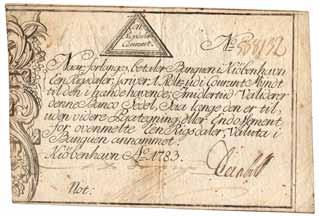 Een
Rigsdaler
Courant.
No 
Naar forlanges, betaler Banquen i Kiøbenhavn
Een Rigsdaler, skriver 1 Rdlr. udi Courant Mynt
til den i hænde havende; Imidlertid Validerer
denne Banco Zedel, Saa længe den er til,
uden videre Egotegning eller Endossement,
for ovenmelte Een Rigsdaler, Valuta i
Banquen annammet.
Kiøbenhavn Ao. 1783.
Not: